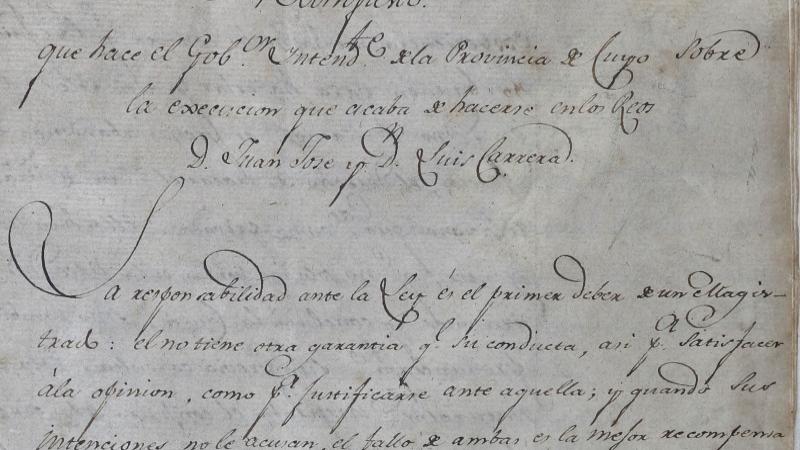 que hace el Gob.or Intend.te de la Provincia de Cuyo sobre
la execucion que acaba de hacerse en los Reos
D. Juan Jose y D.n Luis Carrera.
La responsabilidad ante la Ley és el primer deber de un Magis-
trado: el no tiene otra garantia q.e su conducta, asi p.a satisfacer
ála opinion, como p.a justificarse ante aquella; y quando sus
intenciones no le acusan, el fallo de ambas es la mejor recompensa